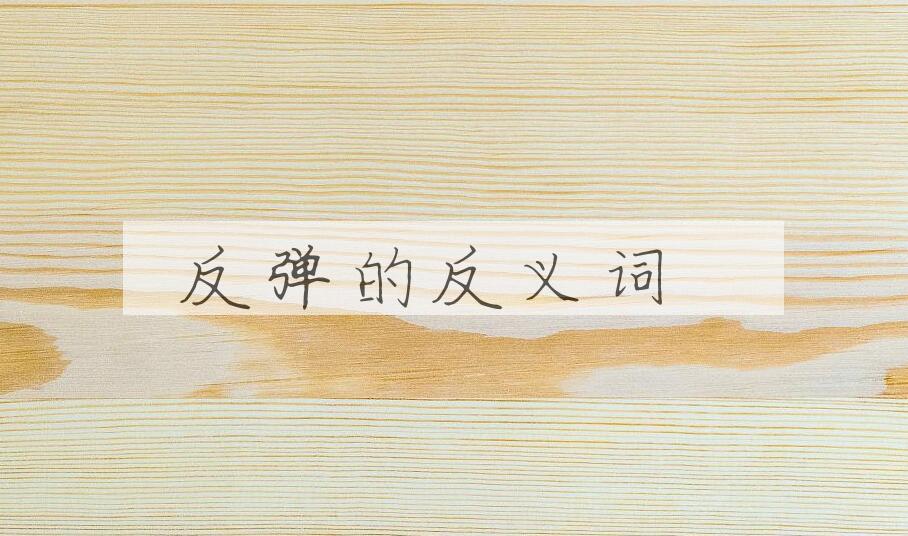 反弹的反义词